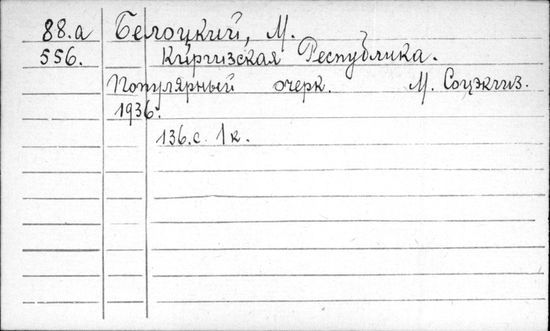 88.а Белоцкий, М.
556. Киргизская Республика.
Популярный очерк. М. Соцэкгиз.
1936г.
136.с. 1к.